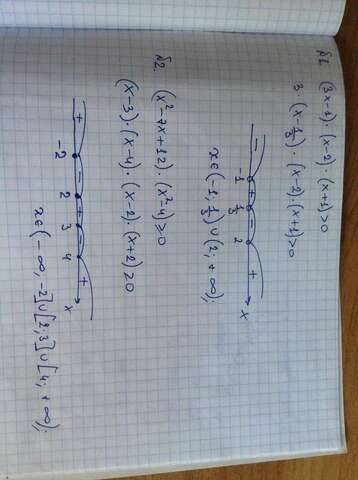 №1. (3x-1)·(x-2)·(x+1)>0
3·(x-1/3)·(x-2)·(x+1)>0
- -1 + 1/3 - 2 + x
x∈(-1; 1/3)∪(2; +∞);
№2. (x²-7x+12)·(x²-4)≥0
(x-3)·(x-4)·(x-2)·(x+2)≥0
+ -2 - 2 + 3 - 4 + x
x∈(-∞; -2]∪[2; 3]∪[4; +∞);